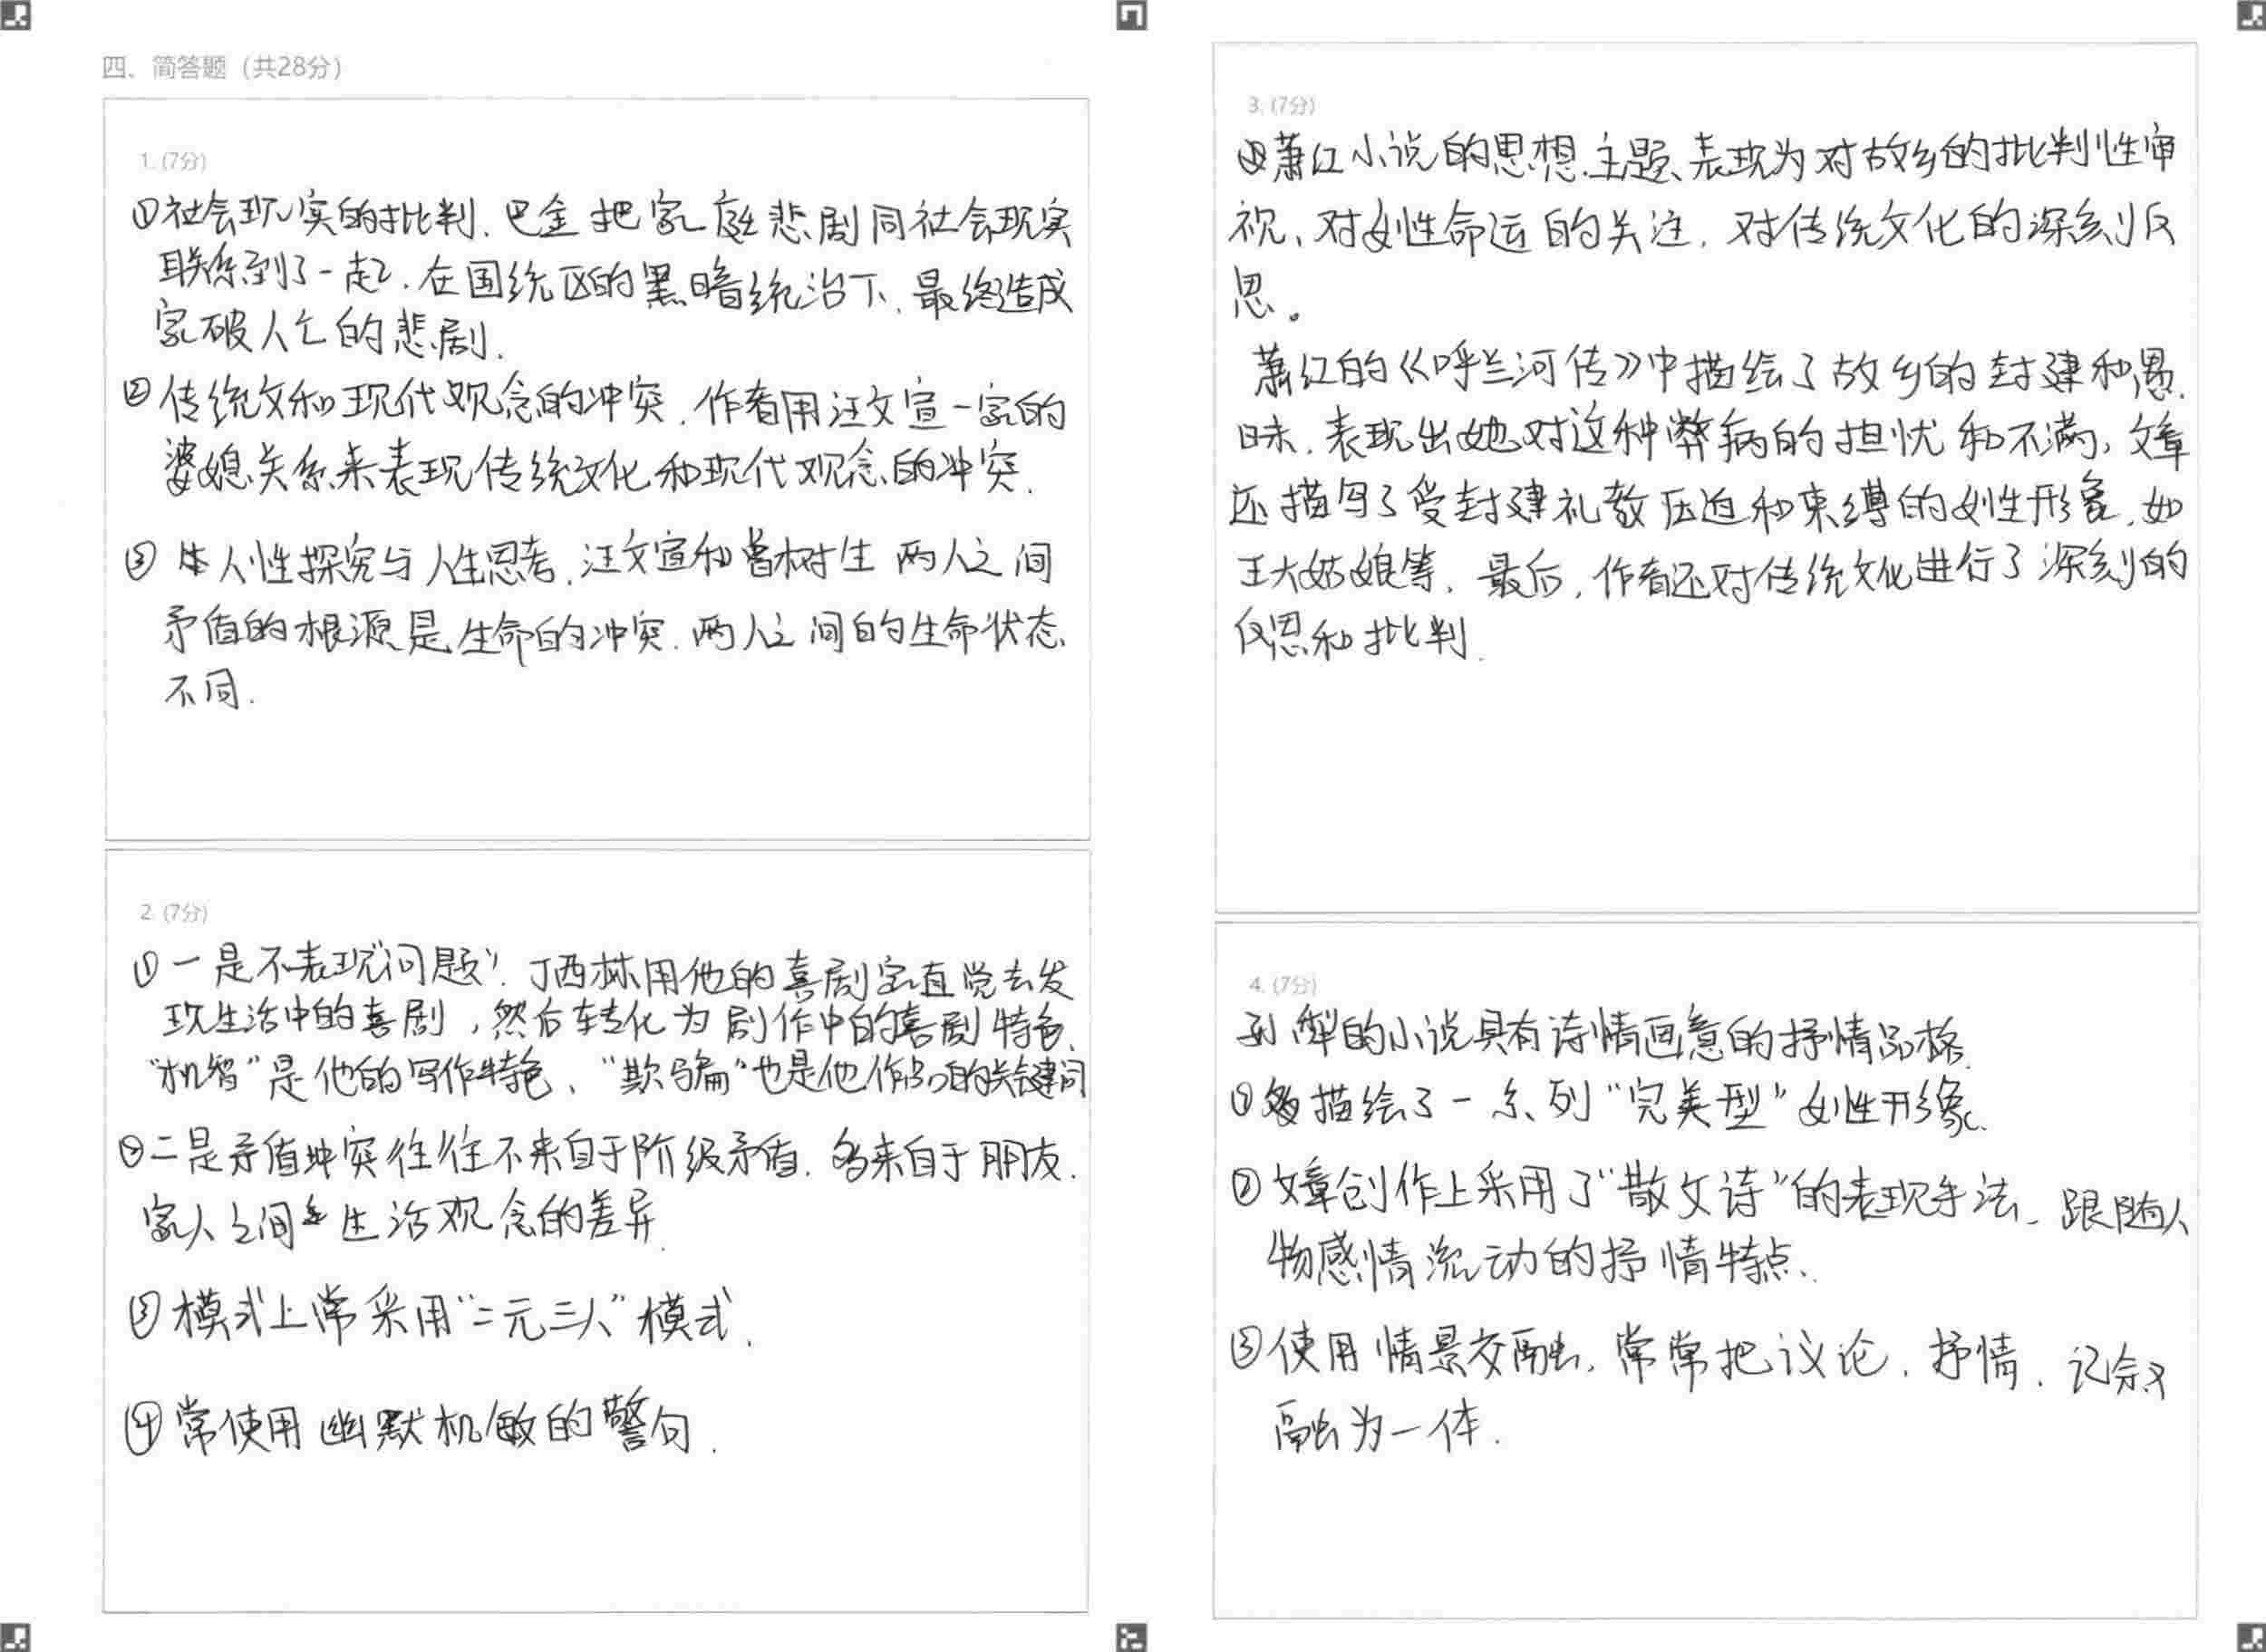 四、简答题（共28分）
1. (7分)
①社会现实的批判. 巴金把家庭悲剧同社会现实
联系到了一起. 在国统区的黑暗统治下. 最终造成
家破人亡的悲剧.
②传统文和现代观念的冲突. 作者用汪文宣一家的
婆媳关系来表现传统文化和现代观念的冲突.
③人性探究与人生思考. 汪文宣和曾树生两人之间
矛盾的根源是生命的冲突. 两人之间的生命状态
不同.
2. (7分)
①一是不表现“问题”. 丁西林用他的喜剧家直觉去发
现生活中的喜剧，然后转化为剧作中的喜剧特色.
“机智”是他的写作特色、“欺骗”也是他作品的关键词
②二是矛盾冲突往往不来自于阶级矛盾. 多来自于朋友.
家人之间生活观念的差异.
③模式上常采用“二元三人”模式.
④常使用幽默机敏的警句.
3. (7分)
萧红小说的思想主题、表现为对故乡的批判性审
视、对女性命运的关注. 对传统文化的深刻反
思。
萧红的《呼兰河传》中描绘了故乡的封建和愚
昧. 表现出她对这种弊病的担忧和不满，文章
还描写了受封建礼教压迫和束缚的女性形象. 如
王大姑娘等. 最后，作者还对传统文化进行了深刻的
反思和批判.
4. (7分)
孙犁的小说具有诗情画意的抒情品格.
①描绘了一系列“完美型”女性形象.
②文章创作上采用了“散文诗”的表现手法、跟随人
物感情流动的抒情特点.
③使用情景交融. 常常把议论. 抒情. 记叙
融为一体.